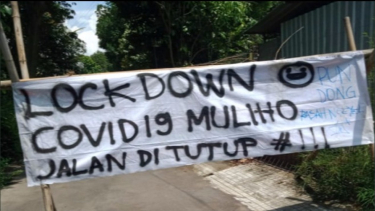 LOCKDOWN
COVID19 MULIHO
JALAN DI TUTUP #!!!
DONG